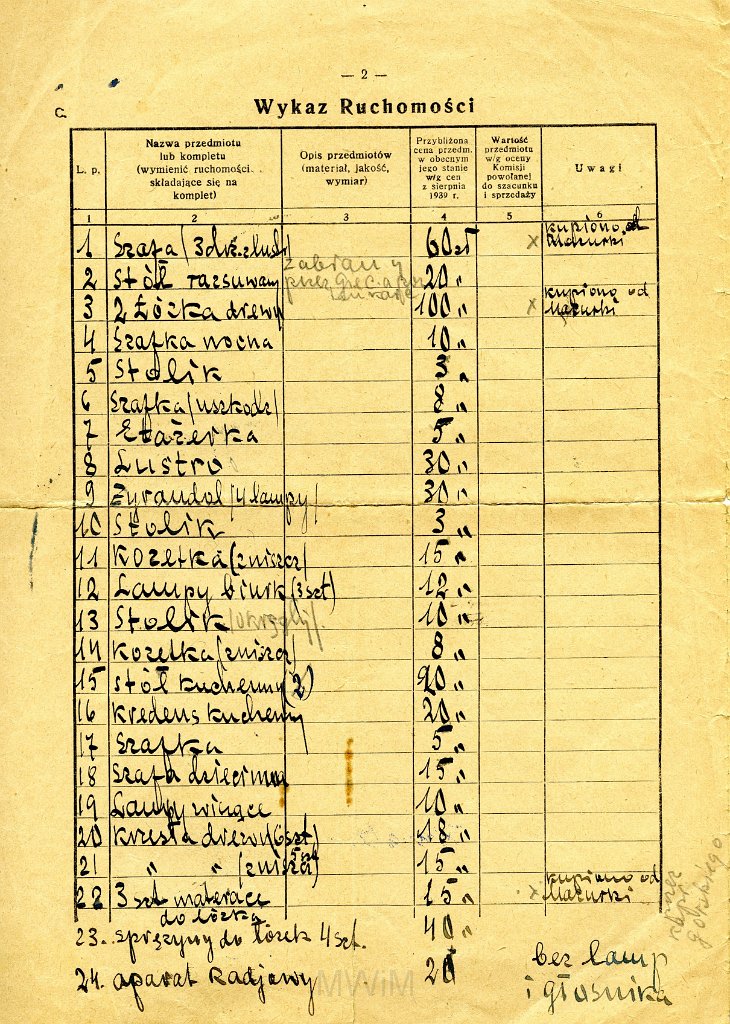 — 2 —
C.
Wykaz Ruchomości
L. p.
Nazwa przedmiotu
lub kompletu
(wymienić ruchomości
składające się na
komplet)
Opis przedmiotów
(materiał, jakość,
wymiar)
Przybliżona
cena przedm.
w obecnym
jego stanie
w/g cen
z sierpnia
1939 r.
Wartość
przedmiotu
w/g oceny
Komisji
powołanej
do szacunku
i sprzedaży
Uwagi
1 2 3 4 5 6
1 Szafa /3 drz. z lustr/ 60 zł x kupiono od Mazurki
2 Stół rozsuwany zabrany przez 20 "
3 2 Łóżka drewn 100 " x kupiono od Mazurki
4 Szafka nocna 10 "
5 Stolik 3 "
6 Szafka /uszkodz/ 8 "
7 Etażerka 5 "
8 Lustro 30 "
9 Żyrandol /4 lampy/ 30 "
10 Stolik 3 "
11 Kozetka /zniszcz/ 15 "
12 Lampy biurk (3 szt) 12 "
13 Stolik /okrągły/ 10 "
14 Kozetka /zniszcz/ 8 "
15 Stół kuchenny (2) 20 "
16 Kredens kuchenny 20 "
17 Szafka 5 "
18 Szafa dziecinna 15 "
19 Lampy wiszące 10 "
20 Krzesła drewn (6 szt) 18 "
21 " " /zniszcz/ 15 "
22 3 szt materace do łóżka 15 " x kupiono od Mazurki
23. sprężyny do łózek 4 szt. 40 "
24. aparat Radjowy 20 bez lamp
i głośnika
MWiM